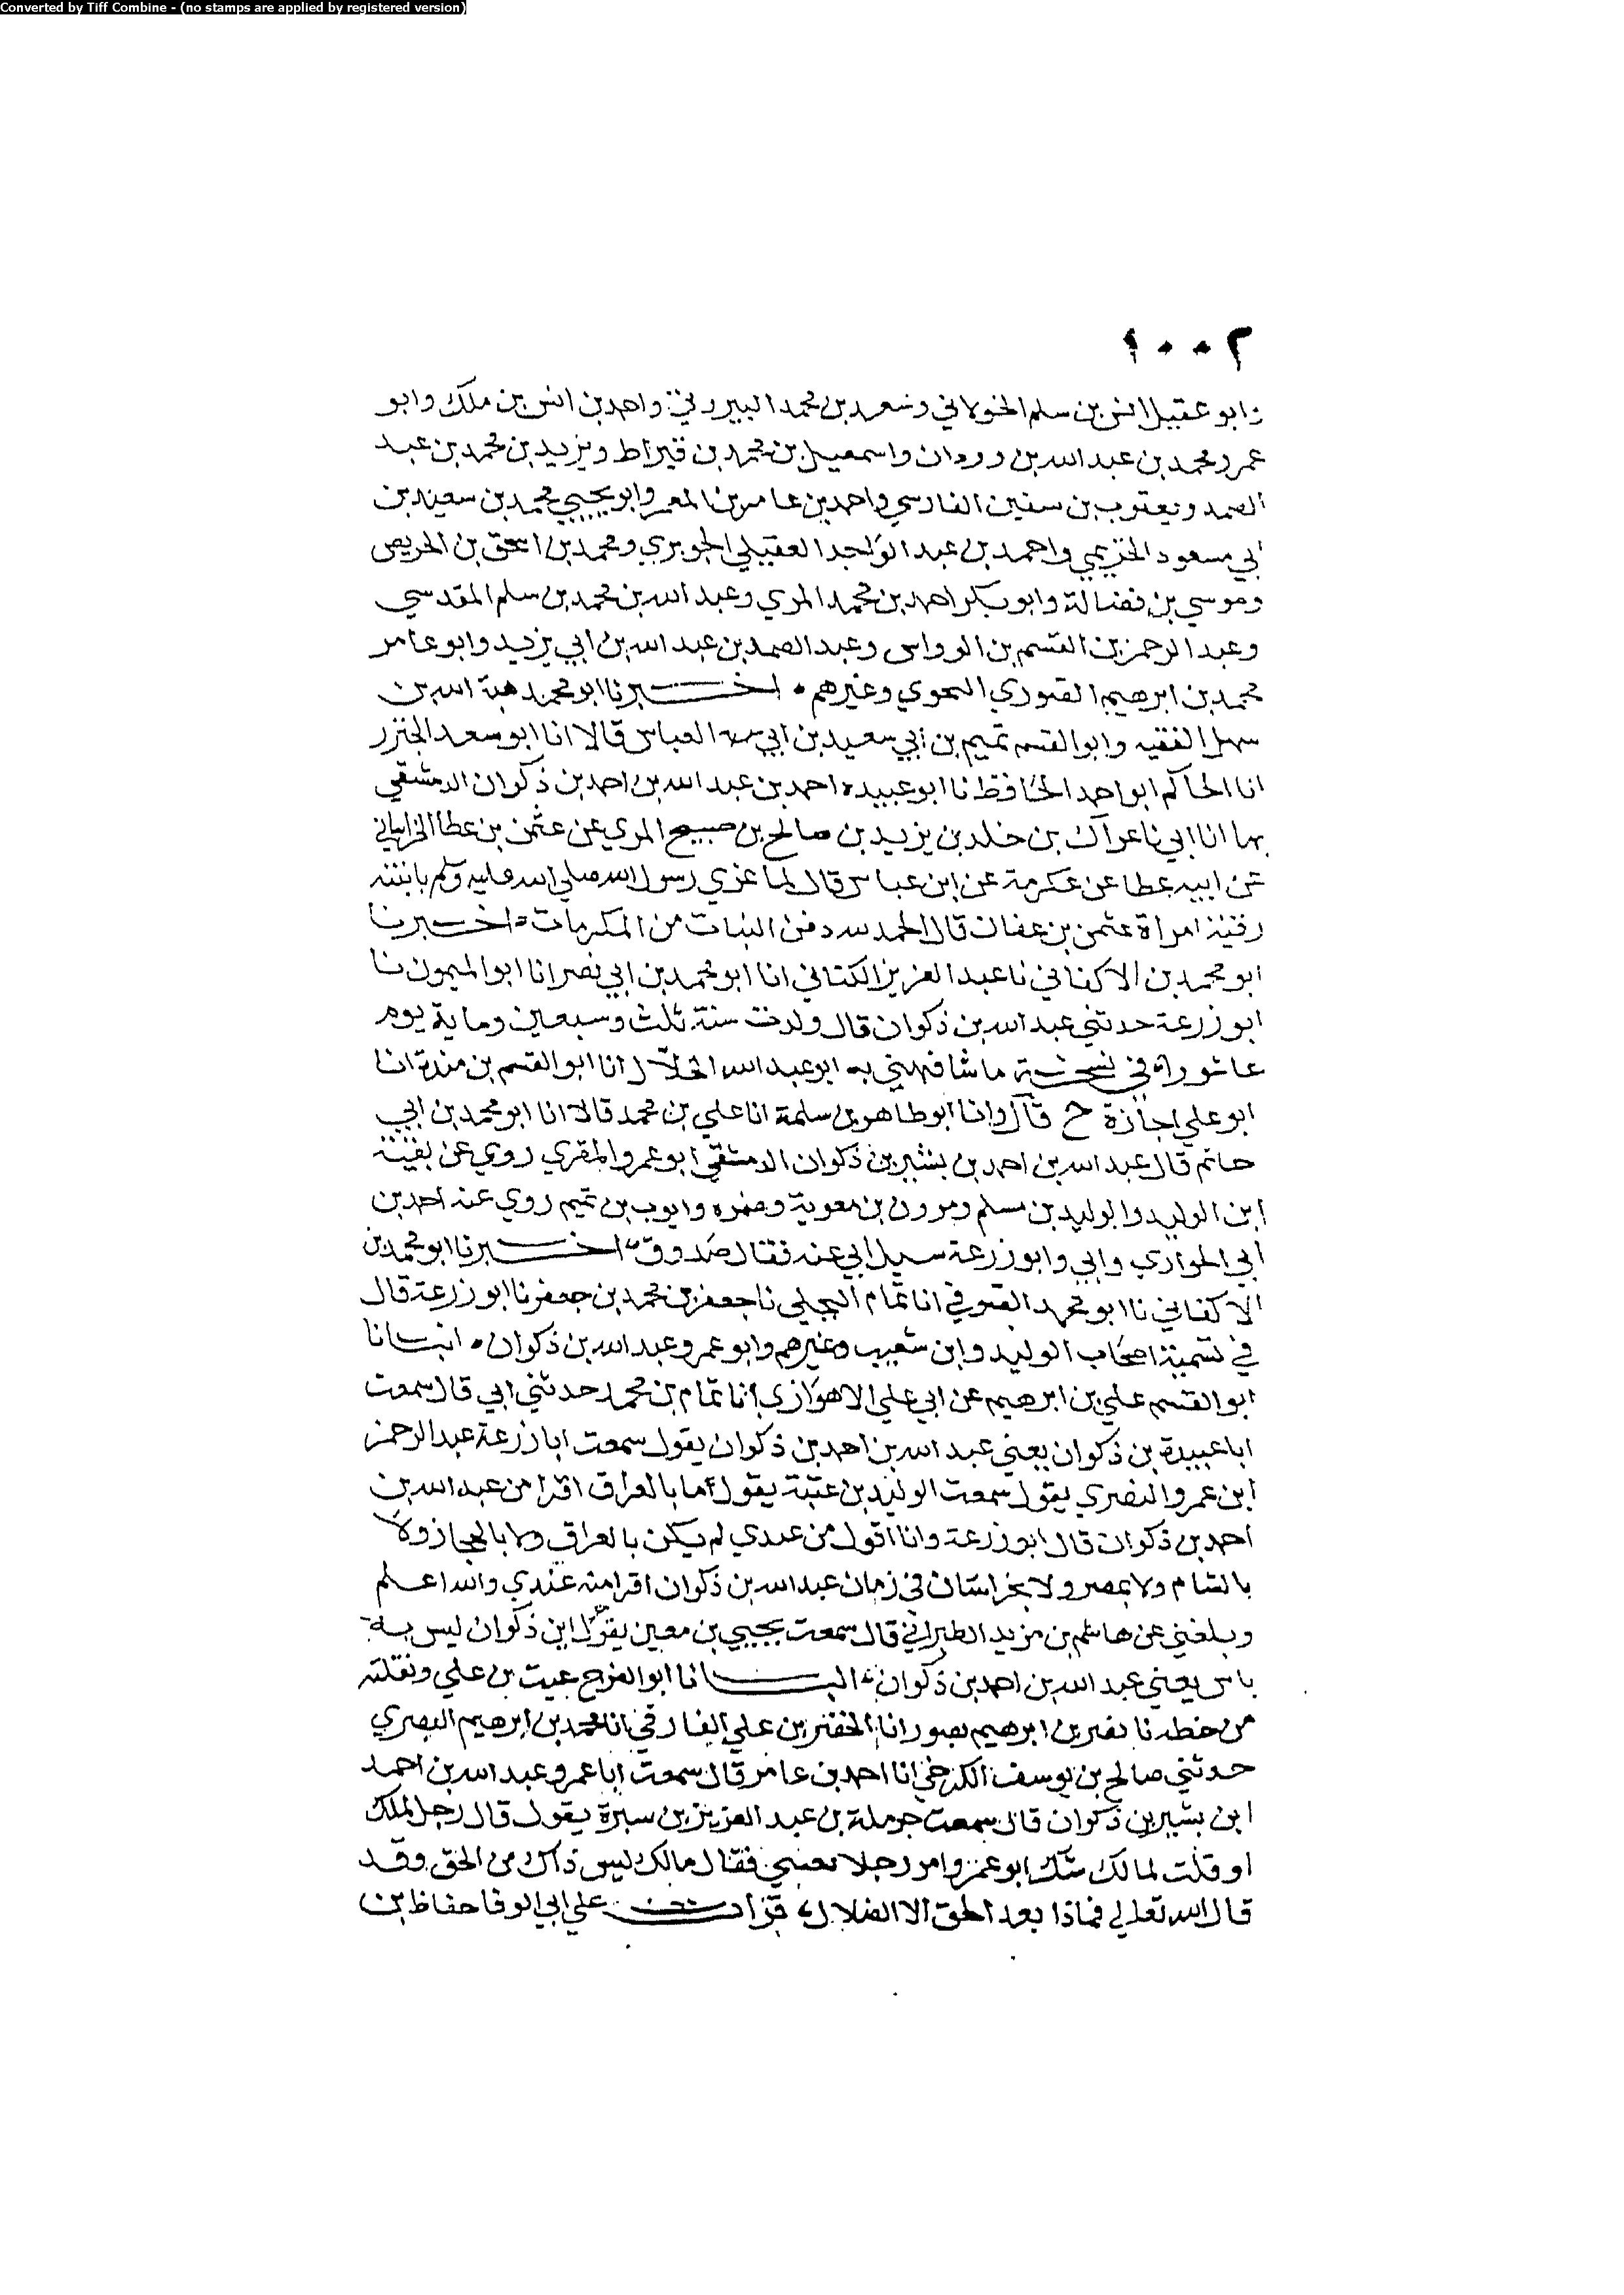 Converted by Tiff Combine - (no stamps are applied by registered version)
١٠٠٢
وابو عقيل انس بن سلم الخولاني وسعد بن محمد البيروتي واحمد بن انس بن ملك وابو
عمرو محمد بن عبد الله بن وردان واسمعيل بن محمد بن قيراط ويزيد بن محمد بن عبد
الصمد ويعقوب بن سفين الفارسي واحمد بن عامر بن المعمر وابو يحيى محمد بن سعيد بن
ابي مسعود الخريمي واحمد بن عبد الواحد العقيلي الجوبري ومحمد بن اسحق بن الحريص
وموسى بن فضالة وابو بكر احمد بن محمد المري وعبد الله بن محمد بن سلم المقدسي
وعبد الرحمن بن القسم بن الرواس وعبد الصمد بن عبد الله بن ابي يزيد وابو عامر
محمد بن ابرهيم الصوري النحوي وغيرهم • اخبرنا ابو محمد هبة الله بن
سهل الفقيه وابو القسم تميم بن ابي سعيد بن ابي العباس قالا انا ابو سعد الجنزر
انا الحاكم ابو احمد الحافظ نا ابو عبيدة احمد بن عبد الله بن احمد بن ذكوان الدمشقي
بها انا ابي نا عراك بن خلد بن يزيد بن صالح بن صبيح المري عن عثمن بن عطا الخراساني
عن ابيه عطا عن عكرمة عن ابن عباس قال لما عزي رسول الله صلى الله عليه وسلم بابنته
رقية امراة عثمن بن عفان قال الحمد لله دفن البنات من المكرمات • اخبرنا
ابو محمد بن الاكفاني نا عبد العزيز الكتاني انا ابو محمد بن ابي نصر انا ابو الميمون نا
ابو زرعة حدثني عبد الله بن ذكوان قال ولدت سنة ثلث وسبعين وماية يوم
عاشوراء في نسخة ما شافهني به ابو عبد الله الخلال انا ابو القسم بن مندة انا
ابو علي اجازة ح قال وانا ابو طاهر بن سلمة انا علي بن محمد قالا انا ابو محمد بن ابي
حاتم قال عبد الله بن احمد بن بشير بن ذكوان الدمشقي ابو عمرو المقري روي عن بقية
ابن الوليد والوليد بن مسلم ومرون بن معوية وضمره وايوب بن تميم روي عنه احمد بن
ابي الحواري وابي وابو زرعة سيل ابي عنه فقال صدوق • اخبرنا ابو محمد بن
الاكفاني نا ابو محمد الصوفي انا تمام البجلي نا جعفر بن محمد بن جعفر نا ابو زرعة قال
في تسمية اصحاب الوليد وابن شعيب وغيرهم وابو عمرو عبد الله بن ذكوان • انبانا
ابو القسم علي بن ابرهيم عن ابي علي الاهوازي انا تمام بن محمد حدثني ابي قال سمعت
ابا عبيدة بن ذكوان يعني عبد الله بن احمد بن ذكوان يقول سمعت ابا زرعة عبد الرحمن
ابن عمرو النصري يقول سمعت الوليد بن عتبة يقول ما بالعراق اقرا من عبد الله بن
احمد بن ذكوان قال ابو زرعة وانا اقول من عندي لم يكن بالعراق ولا بالحجاز ولا
بالشام ولا بمصر ولا بخراسان في زمان عبد الله بن ذكوان اقرا منه عندي والله اعلم
وبلغني عن هاشم بن مزيد الطبراني قال سمعت يحيى بن معين يقول ابن ذكوان ليس به
باس يعني عبد الله بن احمد بن ذكوان • انبانا ابو الفرج غيث بن علي ونقلته
من خطه نا نصر بن ابرهيم بصور انا الخضر بن علي الفارقي انا محمد بن ابرهيم البصري
حدثني صالح بن يوسف الكرخي انا احمد بن عامر قال سمعت ابا عمرو عبد الله بن احمد
ابن بشير بن ذكوان قال سمعت حرملة بن عبد العزيز بن سبرة يقول قال رجل لملك
او قلت لمالك شك ابو عمرو امر رجلا يغنيني فقال مالك ليس ذاك من الحق وقد
قال الله تعالى فماذا بعد الحق الا الضلال • قرات على ابي الوفا حفاظ بن